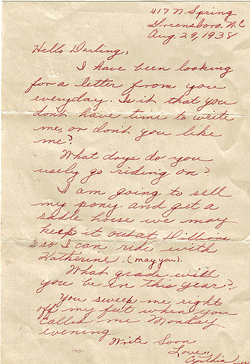 417 N Spring
Greensboro, N.C
Aug. 29, 1938
Hello Darling,
I have been looking
for a letter from you
everyday. Is it that you
don't have time to write
me, or don't you like
me?
What days do you
usely go riding on?
I am going to sell
my pony and get a
sadle horse we may
keep it out at Dillions
so I can ride with
Katherine. (may you).
What grade will
you be in this year?
You sweep me right
off my feet when you
called me Monday
evening
Write Soon
Love,